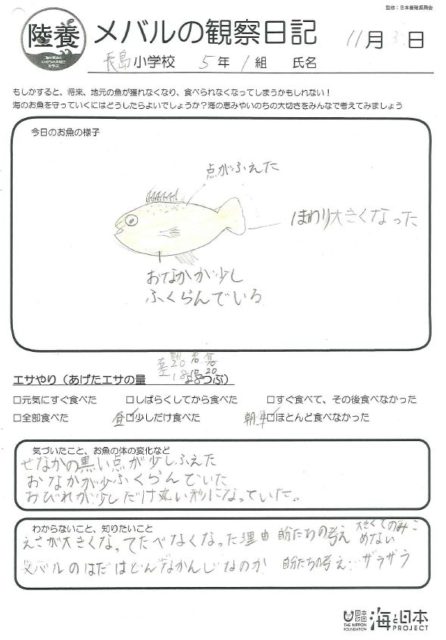 監修：日本養殖振興会
陸養 メバルの観察日記 11月3日
長島小学校 5年 1組 氏名
もしかすると、将来、地元の魚が獲れなくなり、食べられなくなってしまうかもしれない！
海のお魚を守っていくにはどうしたらよいでしょうか？海の恵みやいのちの大切さをみんなで考えてみましょう
今日のお魚の様子
点がふえた
まわり大きくなった
おなかが少し
ふくらんでいる
エサやり（あげたエサの量 つぶ）
□元気にすぐ食べた □しばらくしてから食べた □すぐ食べて、その後食べなかった
□全部食べた 昼□少しだけ食べた 朝 □ほとんど食べなかった
気づいたこと、お魚の体の変化など
せなかの黒い点が少しふえた
おなかが少ふくらんでいた
おびれが少しだけ丸い形になっていた。
わからないこと、知りたいこと
えさが大きくなってたべなくなった理由 自分たちの考え 大きくてのみこ
めない
メバルのはだはどんなかんじなのか 自分たちの考え…ザラザラ
日本財団 THE NIPPON FOUNDATION 海と日本 PROJECT